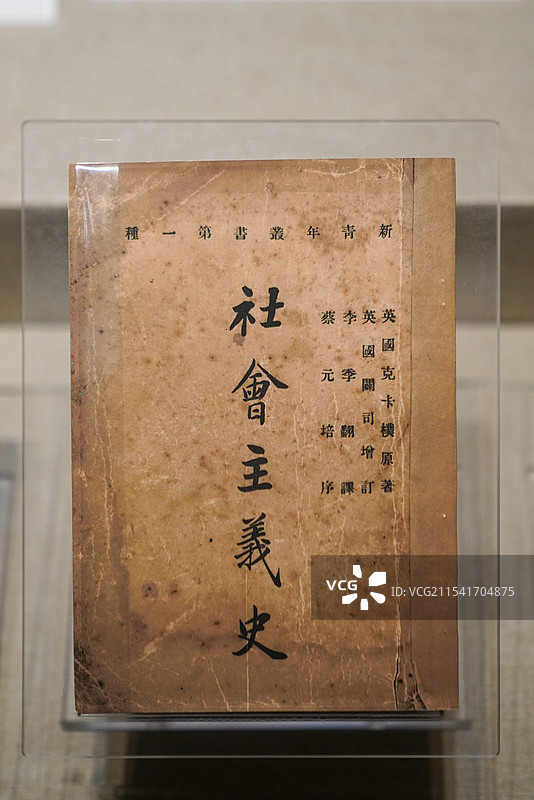 新青年叢書第一種
英國克卡樸原著
英國闢司增訂
李季翻譯
蔡元培序
社會主義史
VCG
ID: VCG211541704875